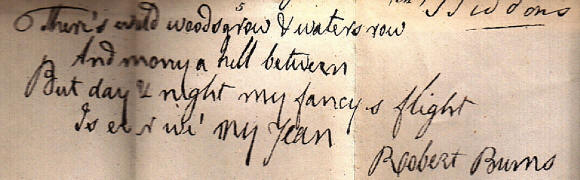 There's wild woods grow & waters row
And mony a hill between
But day & night my fancy s flight
Is ever wi' my Jean
Robert Burns